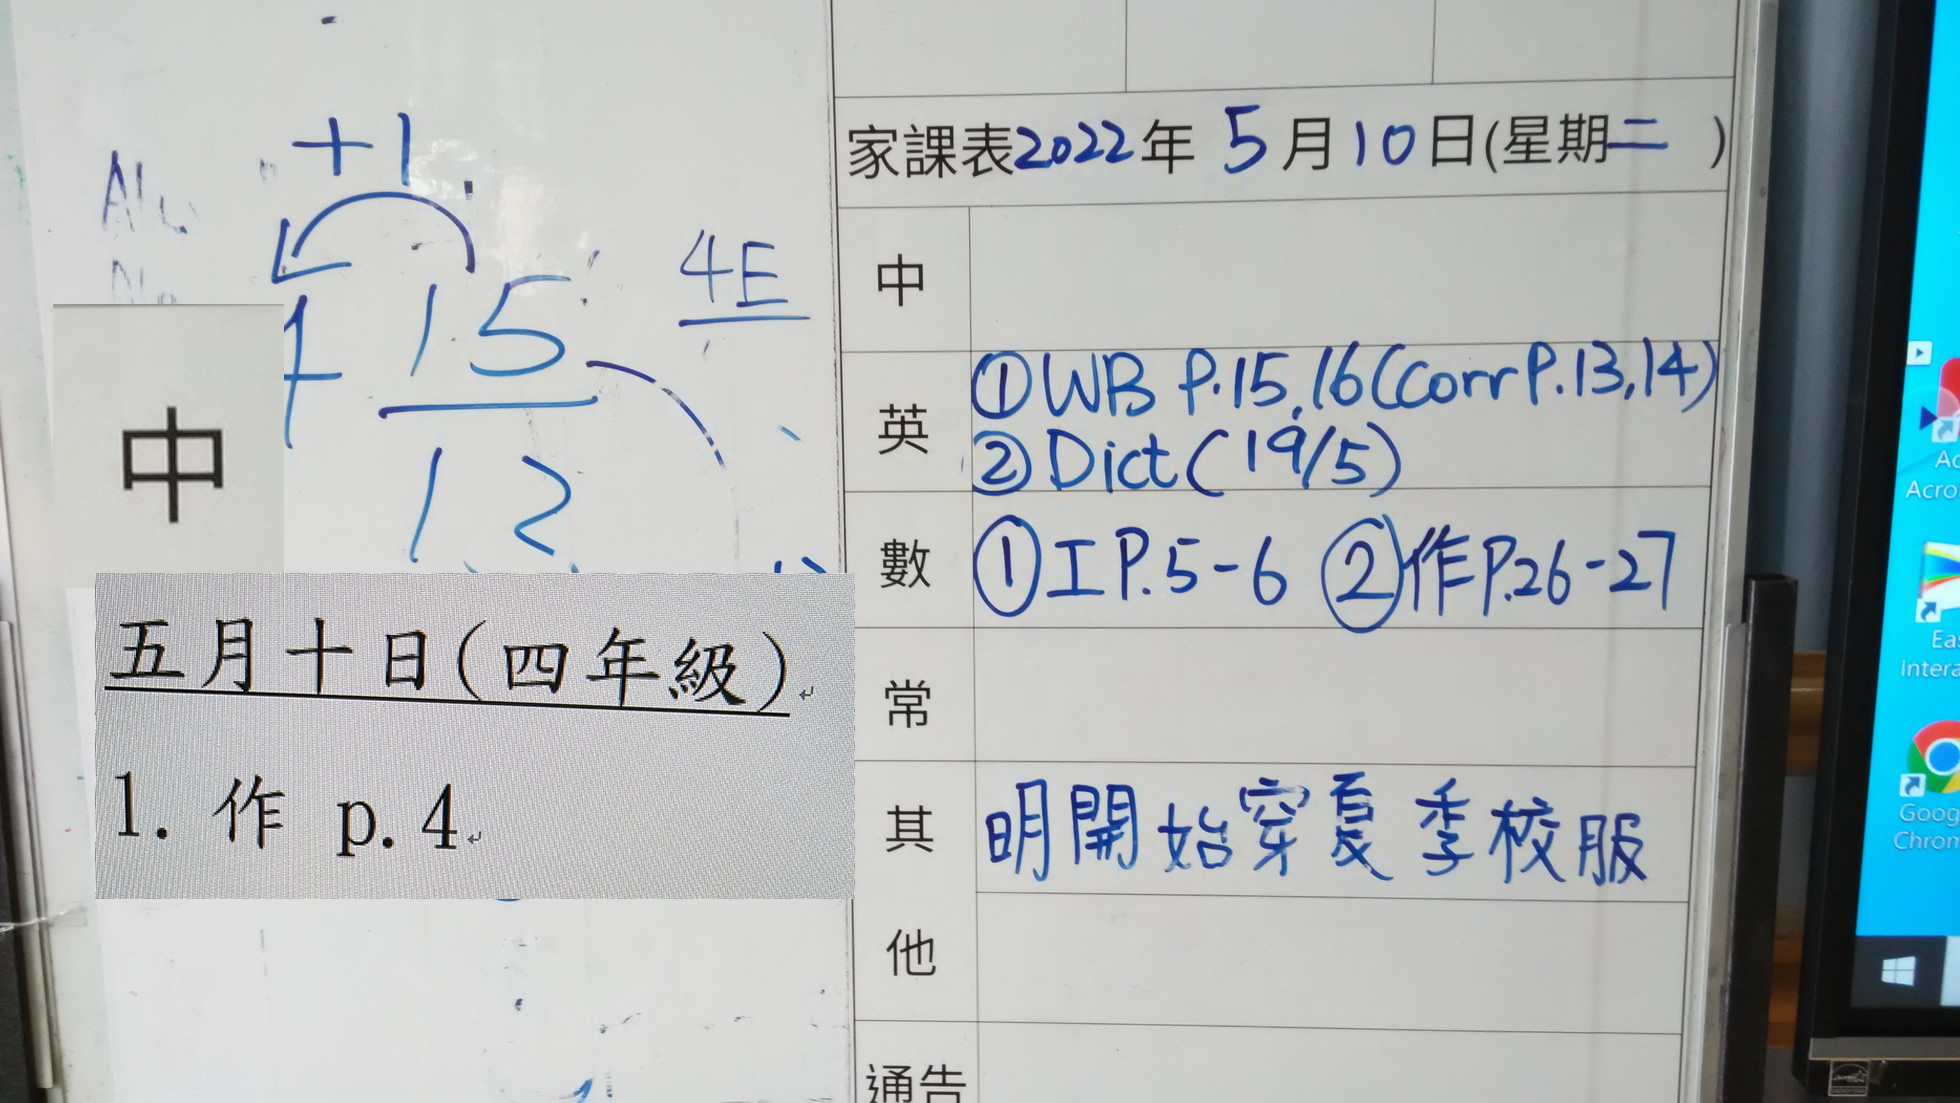 +1
4 15
12
4E
中
五月十日(四年級)
1. 作 p.4
家課表2022年 5月10日(星期二 )
中
英 ①WB P.15,16(corr P.13,14)
②Dict(19/5)
數 ①工P.5-6 ②作P.26-27
常
其 明開始穿夏季校服
他
通告
Acro
Eas
Intera
Goog
Chrom